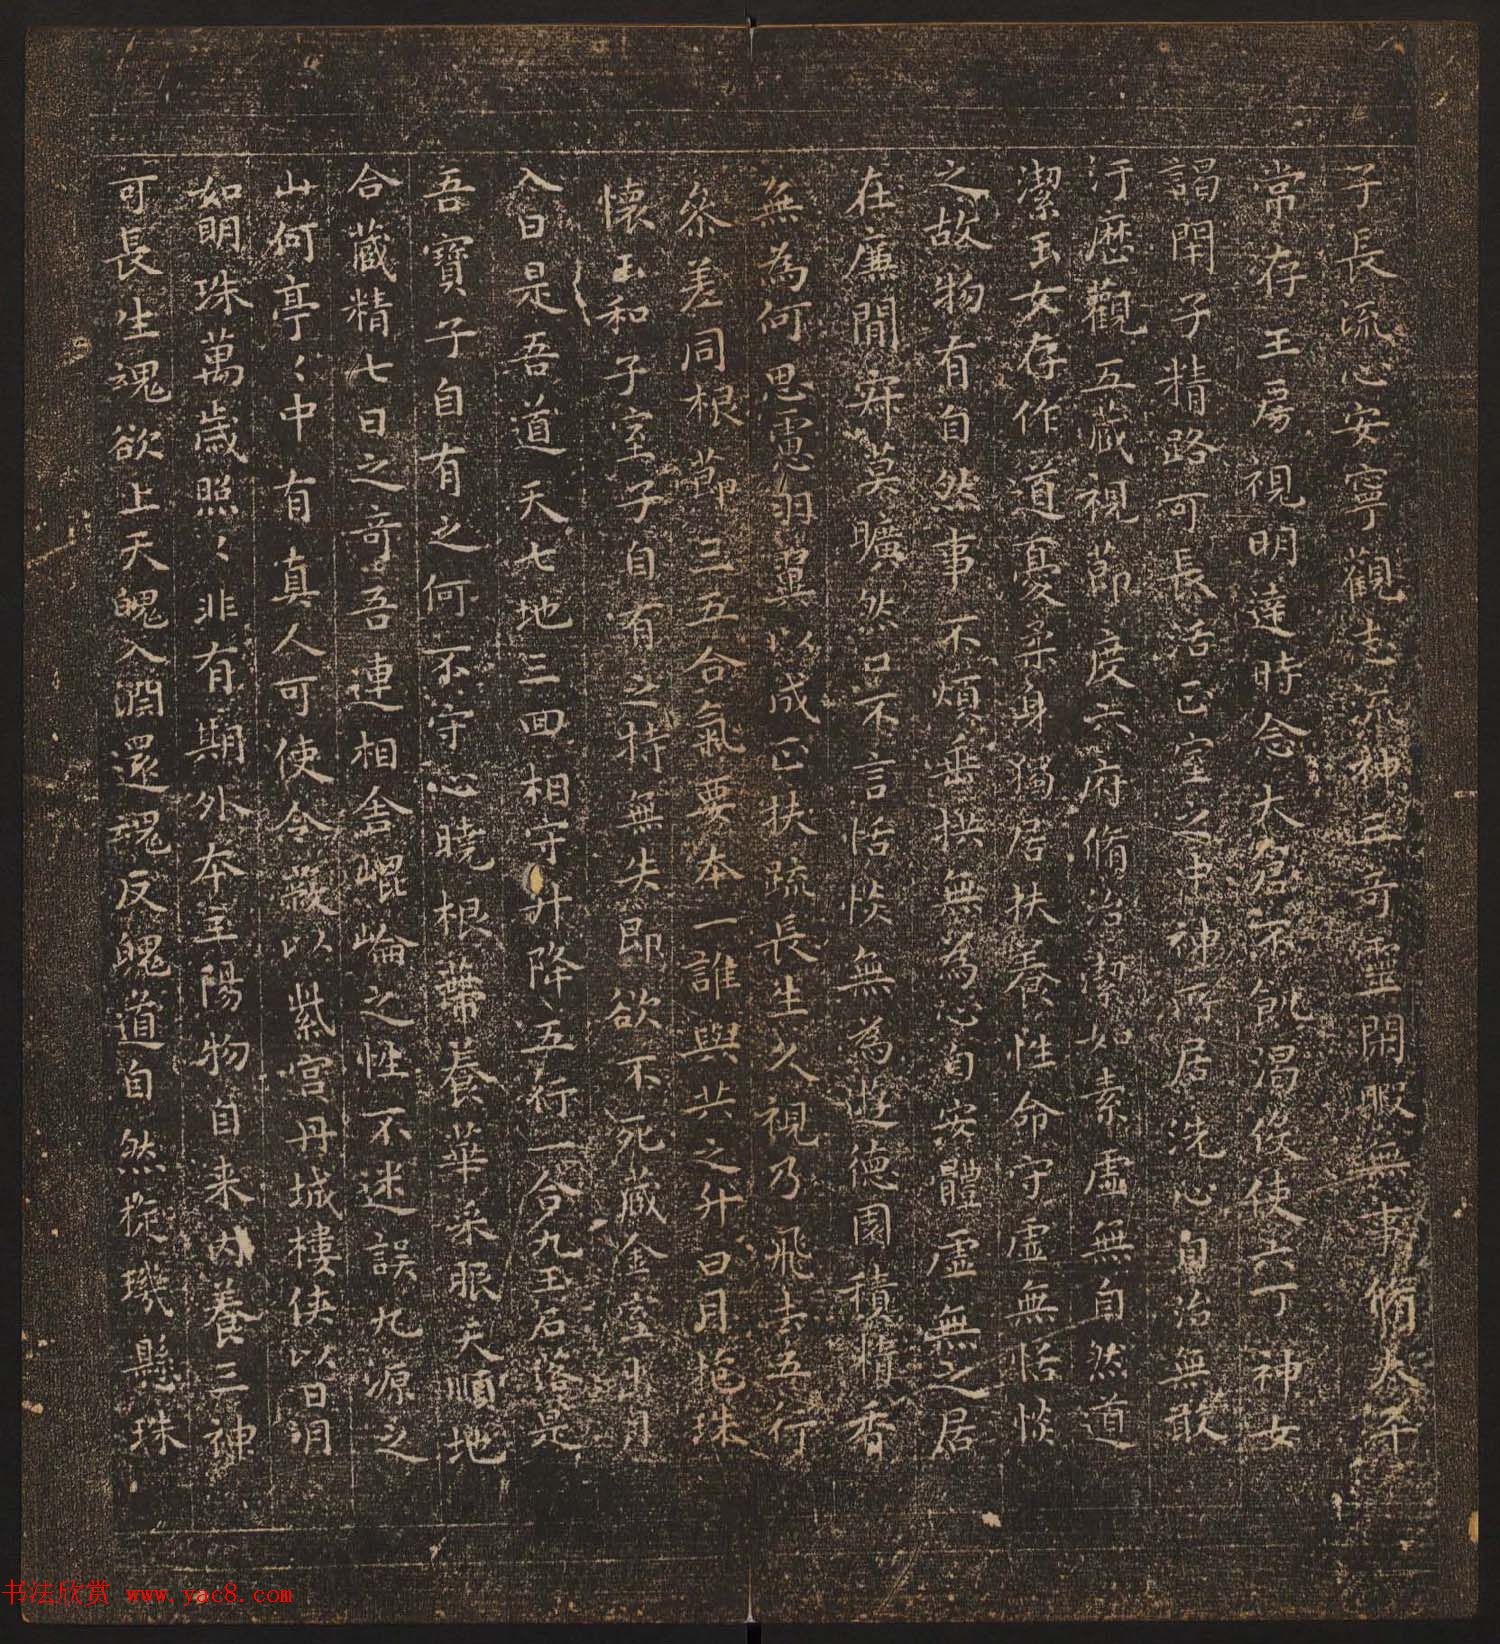 子長流心安寧觀志流神三奇靈閑暇無事脩太平
常存玉房視明達時念大倉不飢渴伇使六丁神女
謁閇子精路可長活正室之中神所居洗心自治無敢
汙歷觀五藏視節度六府脩治潔如素虛無自然道
潔玉女存作道憂柔身獨居扶養性命守虛無恬惔
之故物有自然事不煩垂拱無為心自安體虛無之居
在廉閒寂莫曠然口不言恬惔無為遊德園積精香
無為何思慮羽翼以成正扶疏長生久視乃飛去五行
叅差同根節三五合氣要本一誰與共之升日月抱珠
懷玉和子室子自有之持無失即欲不死藏金室出月
入日是吾道天七地三回相守升降五行一合九玉石落是
吾寶子自有之何不守心曉根蔕養華采眼天順地
合藏精七日之奇吾連相舍崐崘之性不迷誤九源之
山何亭〻中有真人可使令蔽以紫宮丹城樓俠以日月
如明珠萬歲照〻非有期外本三陽物自来内養三神
可長生魂欲上天魄入淵還魂反魄道自然琁璣懸珠
书法欣赏 www.yac8.com